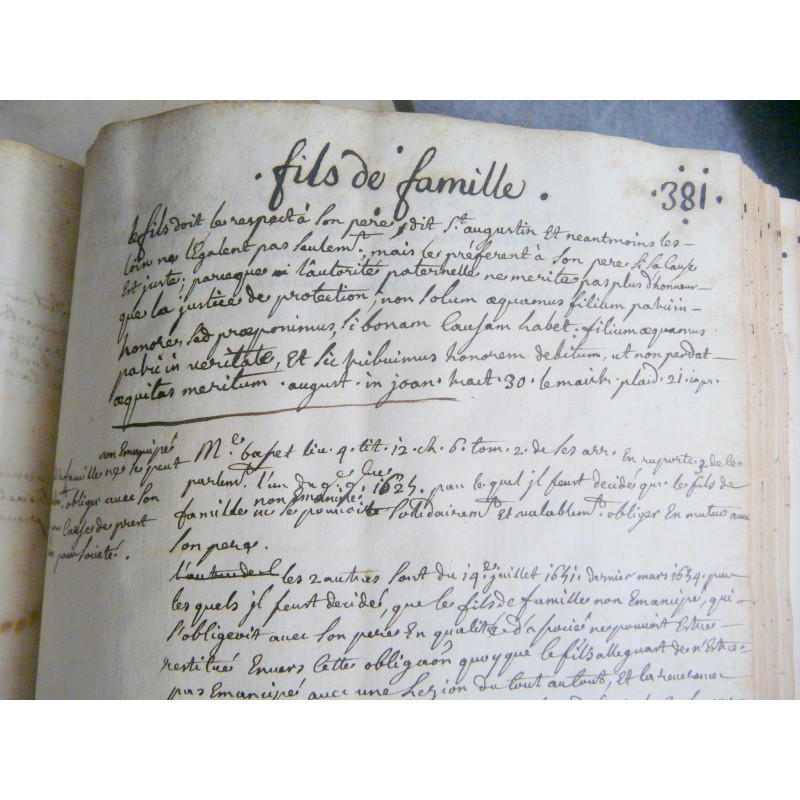 . fils de famille .
. 381 .
le fils doit le respect à son pere, dit St. augustin Et neantmoins les-
loix ne l'Egalent pas seulemt., mais le préferent à son pere si sa Cause
Est juste; parceque l'autorité paternelle ne merite pas plus d'honneur-
que la justice de protection, non solum æquamus filium patri in-
honore, sed præponimus, si bonam Causam habet. filium æquamus
patri in veritate, Et sic tribuimus honorem debitum, ut non perdat-
æquitas meritum. august. in joan. tract. 30. lemaitre plaid. 21. in pr.
non Emancipé
fils de famille ne se peut
obliger avec son
pere Cause de prest
pour societé.
Mr. basset liv. 4. tit. 12. ch. 6. tom. 2. de ses arr. En raporte 3 de le-
parlemt. l'un du 9.e Xbre 1624. par lequel jl feust decidé que le fils de
non Emancipé
famille ne se pouvoit solidairemt. Et valablemt. obliger En mutue avec
son pere.
les 2 autres sont du 14e. juillet 1651. dernier mars 1654. par
lesquels jl feust decidé, que le fils de famille non Emancipé, qui-
s'obligeoit avec son pere En qualité d'associé ne pouvoit Estre-
restitué Envers Cette obligaōn quoyque le fils alleguast de n'Estre-
pas Emancipé avec une Lezion du tout au tout, Et la reverence